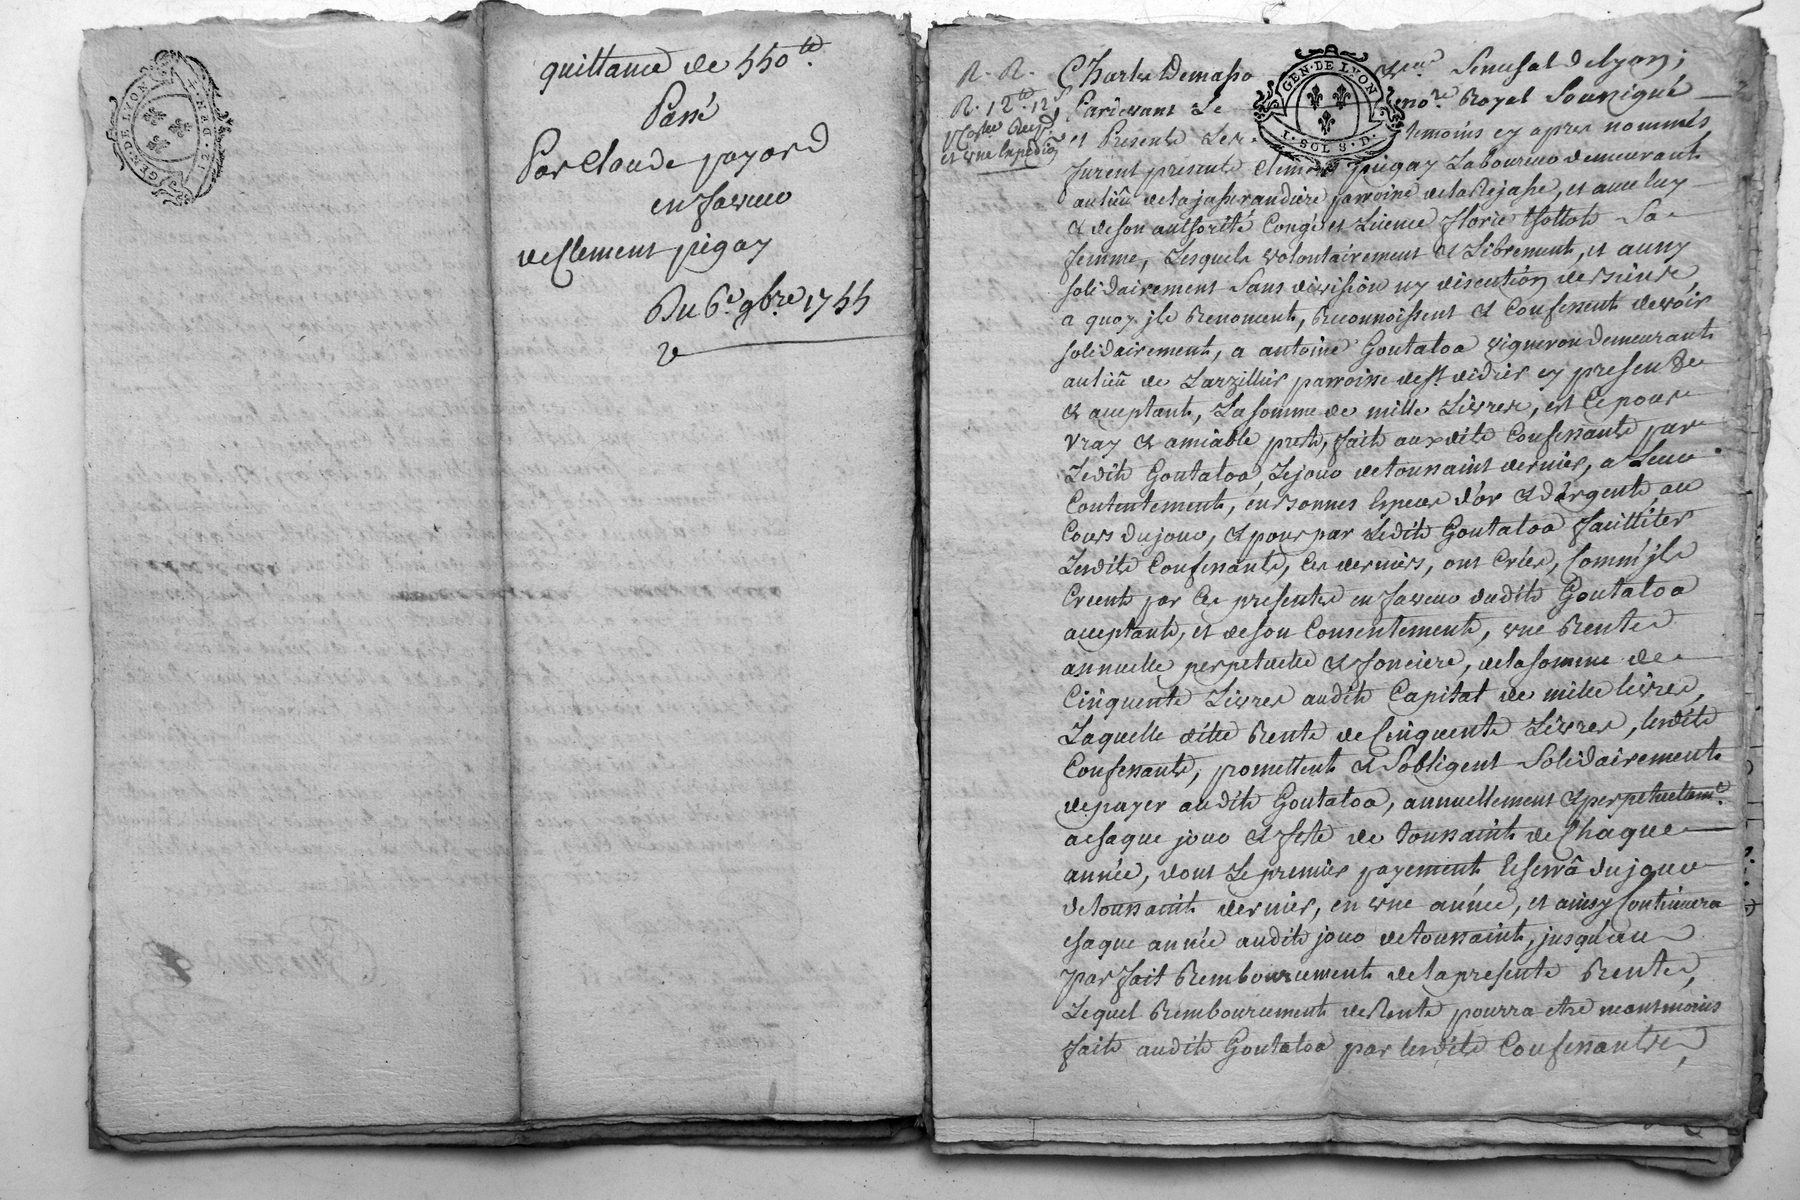 GEN · DE LYON · ET · DEN ·
quittance de 550 ᵗᵗ.
Passé
Par Claude payard
en faveur
de Clement pigay
Du 6ᵉ 9bre 1755
R. R.
R. 12ᵗᵗ. 12ˢ
et une Expedion
GEN · DE LYON
1 · SOL 8 · D ·
Charles Demasso Senechal de lyon;
Pardevant Le noʳᵉ Royal Soussigné
et Presents Les temoins cy apres nommés
furent presents Clement pigay Laboureur demeurant
au lieu de la jasserandiere parroisse de la Rejasse, et avec luy
& de son authorité Congé et Licence florie thollot Sa
femme, Lesquels volontairement & Librement, et aussy
solidairement Sans division ny discution de biens
a quoy ils Renoncent, Reconnoissent & Confessent devoir
solidairement, a antoine Goutaloa vigneron demeurant
au lieu de Larzillier parroisse de sᵗ didier cy present
& aceptant, La somme de mille Livres, est Ce pour
vray & amiable prest, fait auxdits Confessants par
Ledit Goutaloa, Le jour de toussaint dernier, a Leur
Contentement, en bonnes Especes d'or & d'argent au
Cours du jour, & pour par Ledit Goutaloa facilliter
Lesdits Confessants, Ces derniers, ont Créés, Comm'ils
Créent par Ces presentes en faveur dudit Goutaloa
aceptant, et de son Consentement, une Rente
annuelle perpetuelle & fonciere, de la somme de
Cinquente Livres audit Capital de mille livres,
Laquelle ditte Rente de Cinquente Livres, lesdits
Confessants, promettent & s'obligent Solidairement
de payer audit Goutaloa, annuellement & perpetuelamᵗ.
a chaque jour & feste de toussaint de Chaque
année, dont Le premier payement Se ferrâ du jour
de toussaint dernier, en une année, et ainsy Continuera
chaque année audit jour de toussaint, jusqu'au
parfait Remboursement de la presente Rente,
Lequel Remboursement de Rente pourra etre neantmoins
fait audit Goutaloa par lesdits Confessants,